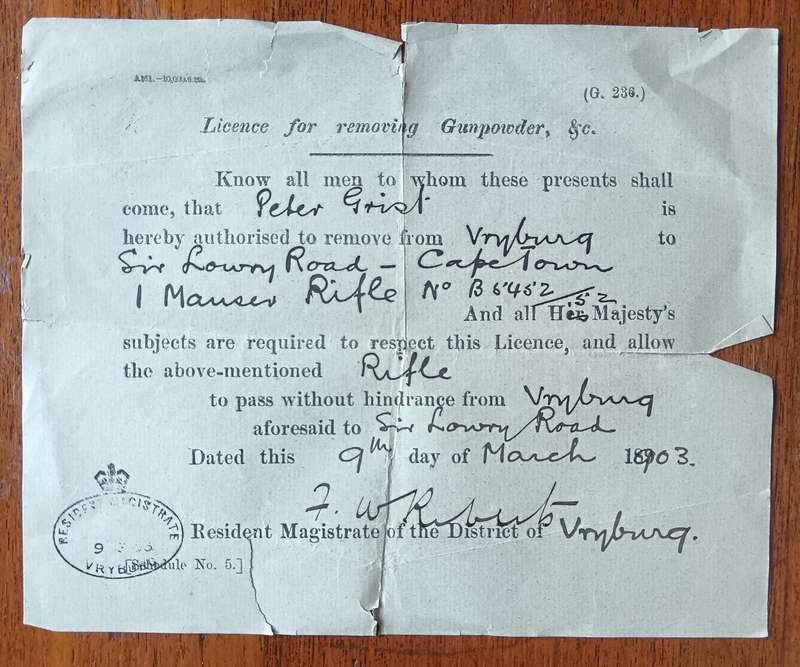 (G. 236.)
Licence for removing Gunpowder, &c.
Know all men to whom these presents shall
come, that Peter Grist is
hereby authorised to remove from Vryburg to
Sir Lowry Road - Cape Town
1 Mauser Rifle No B 5452
52
And all His Majesty's
subjects are required to respect this Licence, and allow
the above-mentioned Rifle
to pass without hindrance from Vryburg
aforesaid to Sir Lowry Road
Dated this 9th day of March 1903.
F. W.
Resident Magistrate of the District of Vryburg.
RESIDENT MAGISTRATE
9
VRYBURG
[Schedule No. 5.]